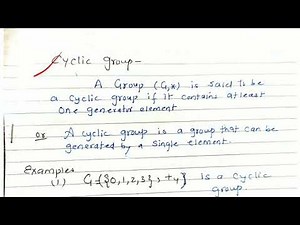 Cyclic group-
A Group (G,*) is said to be
a cyclic group if it contains atleast
one generator element
or A cyclic group is a group that can be
generated by a single element.
Examples
(1) G={{0,1,2,3}, +4} is a cyclic
group.